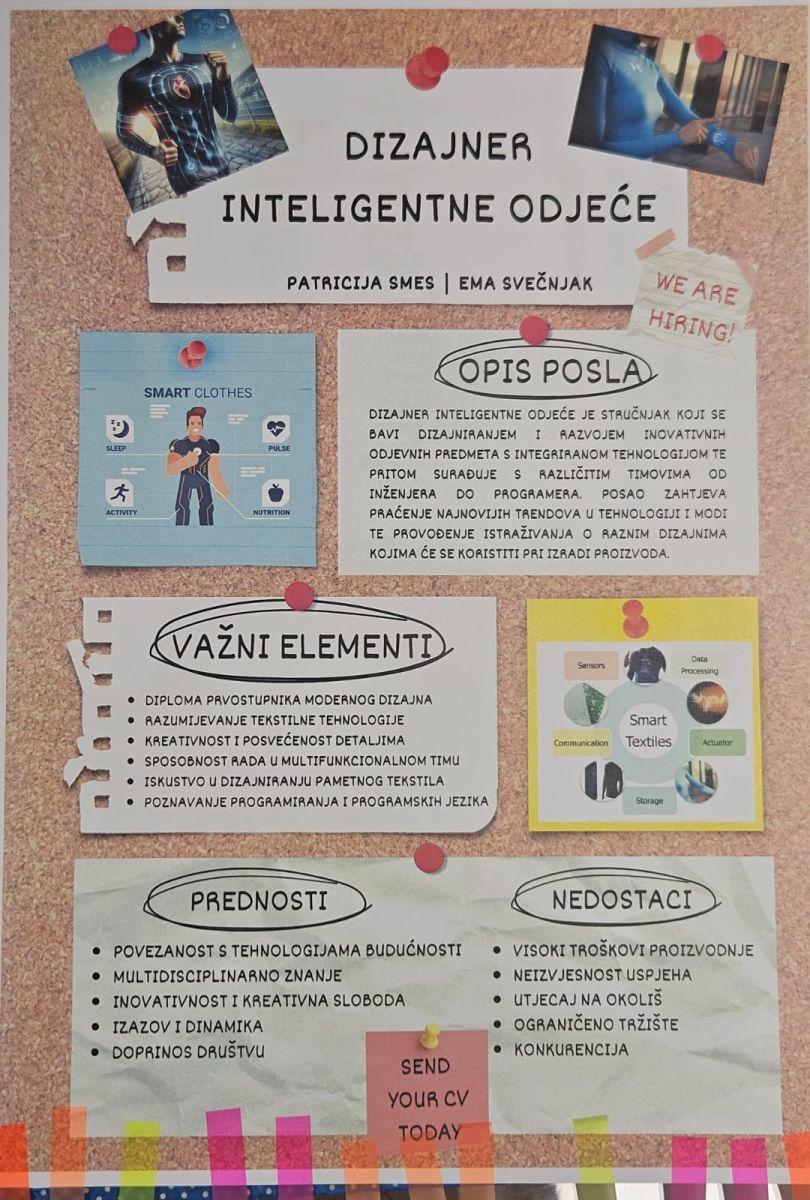 DIZAJNER
INTELIGENTNE ODJEĆE
PATRICIJA SMES | EMA SVEČNJAK
WE ARE
HIRING!
SMART CLOTHES
SLEEP
PULSE
ACTIVITY
NUTRITION
OPIS POSLA
DIZAJNER INTELIGENTNE ODJEĆE JE STRUČNJAK KOJI SE
BAVI DIZAJNIRANJEM I RAZVOJEM INOVATIVNIH
ODJEVNIH PREDMETA S INTEGRIRANOM TEHNOLOGIJOM TE
PRITOM SURAĐUJE S RAZLIČITIM TIMOVIMA OD
INŽENJERA DO PROGRAMERA. POSAO ZAHTJEVA
PRAĆENJE NAJNOVIJIH TRENDOVA U TEHNOLOGIJI I MODI
TE PROVOĐENJE ISTRAŽIVANJA O RAZNIM DIZAJNIMA
KOJIMA ĆE SE KORISTITI PRI IZRADI PROIZVODA.
VAŽNI ELEMENTI
• DIPLOMA PRVOSTUPNIKA MODERNOG DIZAJNA
• RAZUMIJEVANJE TEKSTILNE TEHNOLOGIJE
• KREATIVNOST I POSVEĆENOST DETALJIMA
• SPOSOBNOST RADA U MULTIFUNKCIONALNOM TIMU
• ISKUSTVO U DIZAJNIRANJU PAMETNOG TEKSTILA
• POZNAVANJE PROGRAMIRANJA I PROGRAMSKIH JEZIKA
Sensors
Data
Processing
Smart
Textiles
Communication
Actuator
Storage
PREDNOSTI
• POVEZANOST S TEHNOLOGIJAMA BUDUĆNOSTI
• MULTIDISCIPLINARNO ZNANJE
• INOVATIVNOST I KREATIVNA SLOBODA
• IZAZOV I DINAMIKA
• DOPRINOS DRUŠTVU
NEDOSTACI
• VISOKI TROŠKOVI PROIZVODNJE
• NEIZVJESNOST USPJEHA
• UTJECAJ NA OKOLIŠ
• OGRANIČENO TRŽIŠTE
• KONKURENCIJA
SEND
YOUR CV
TODAY